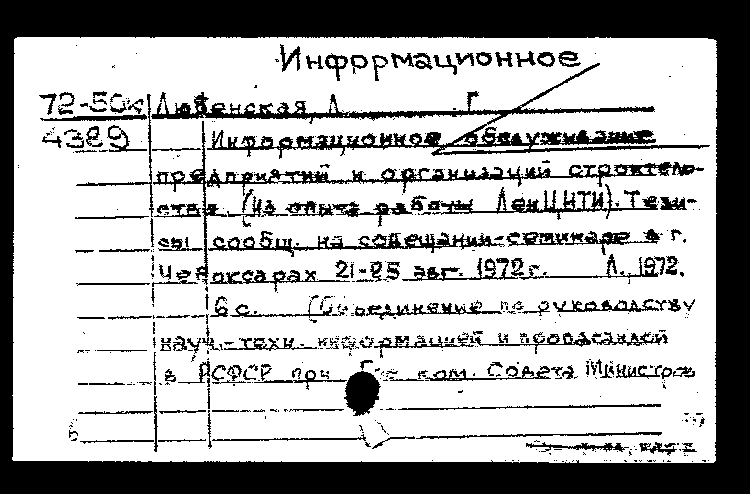 Информационное
72-50к Любенская, Л. Г.
4389 Информационное обслуживание
предприятий и организаций строитель-
ства. (Из опыта работы ЛенЦНТИ). Тези-
сы сообщ. на совещании-семинаре в г.
Чебоксарах 21-25 авг. 1972 г. Л., 1972.
6 с. (Объединение по руководству
науч.-техн. информацией и пропагандой
в РСФСР при ком. Совета Министров